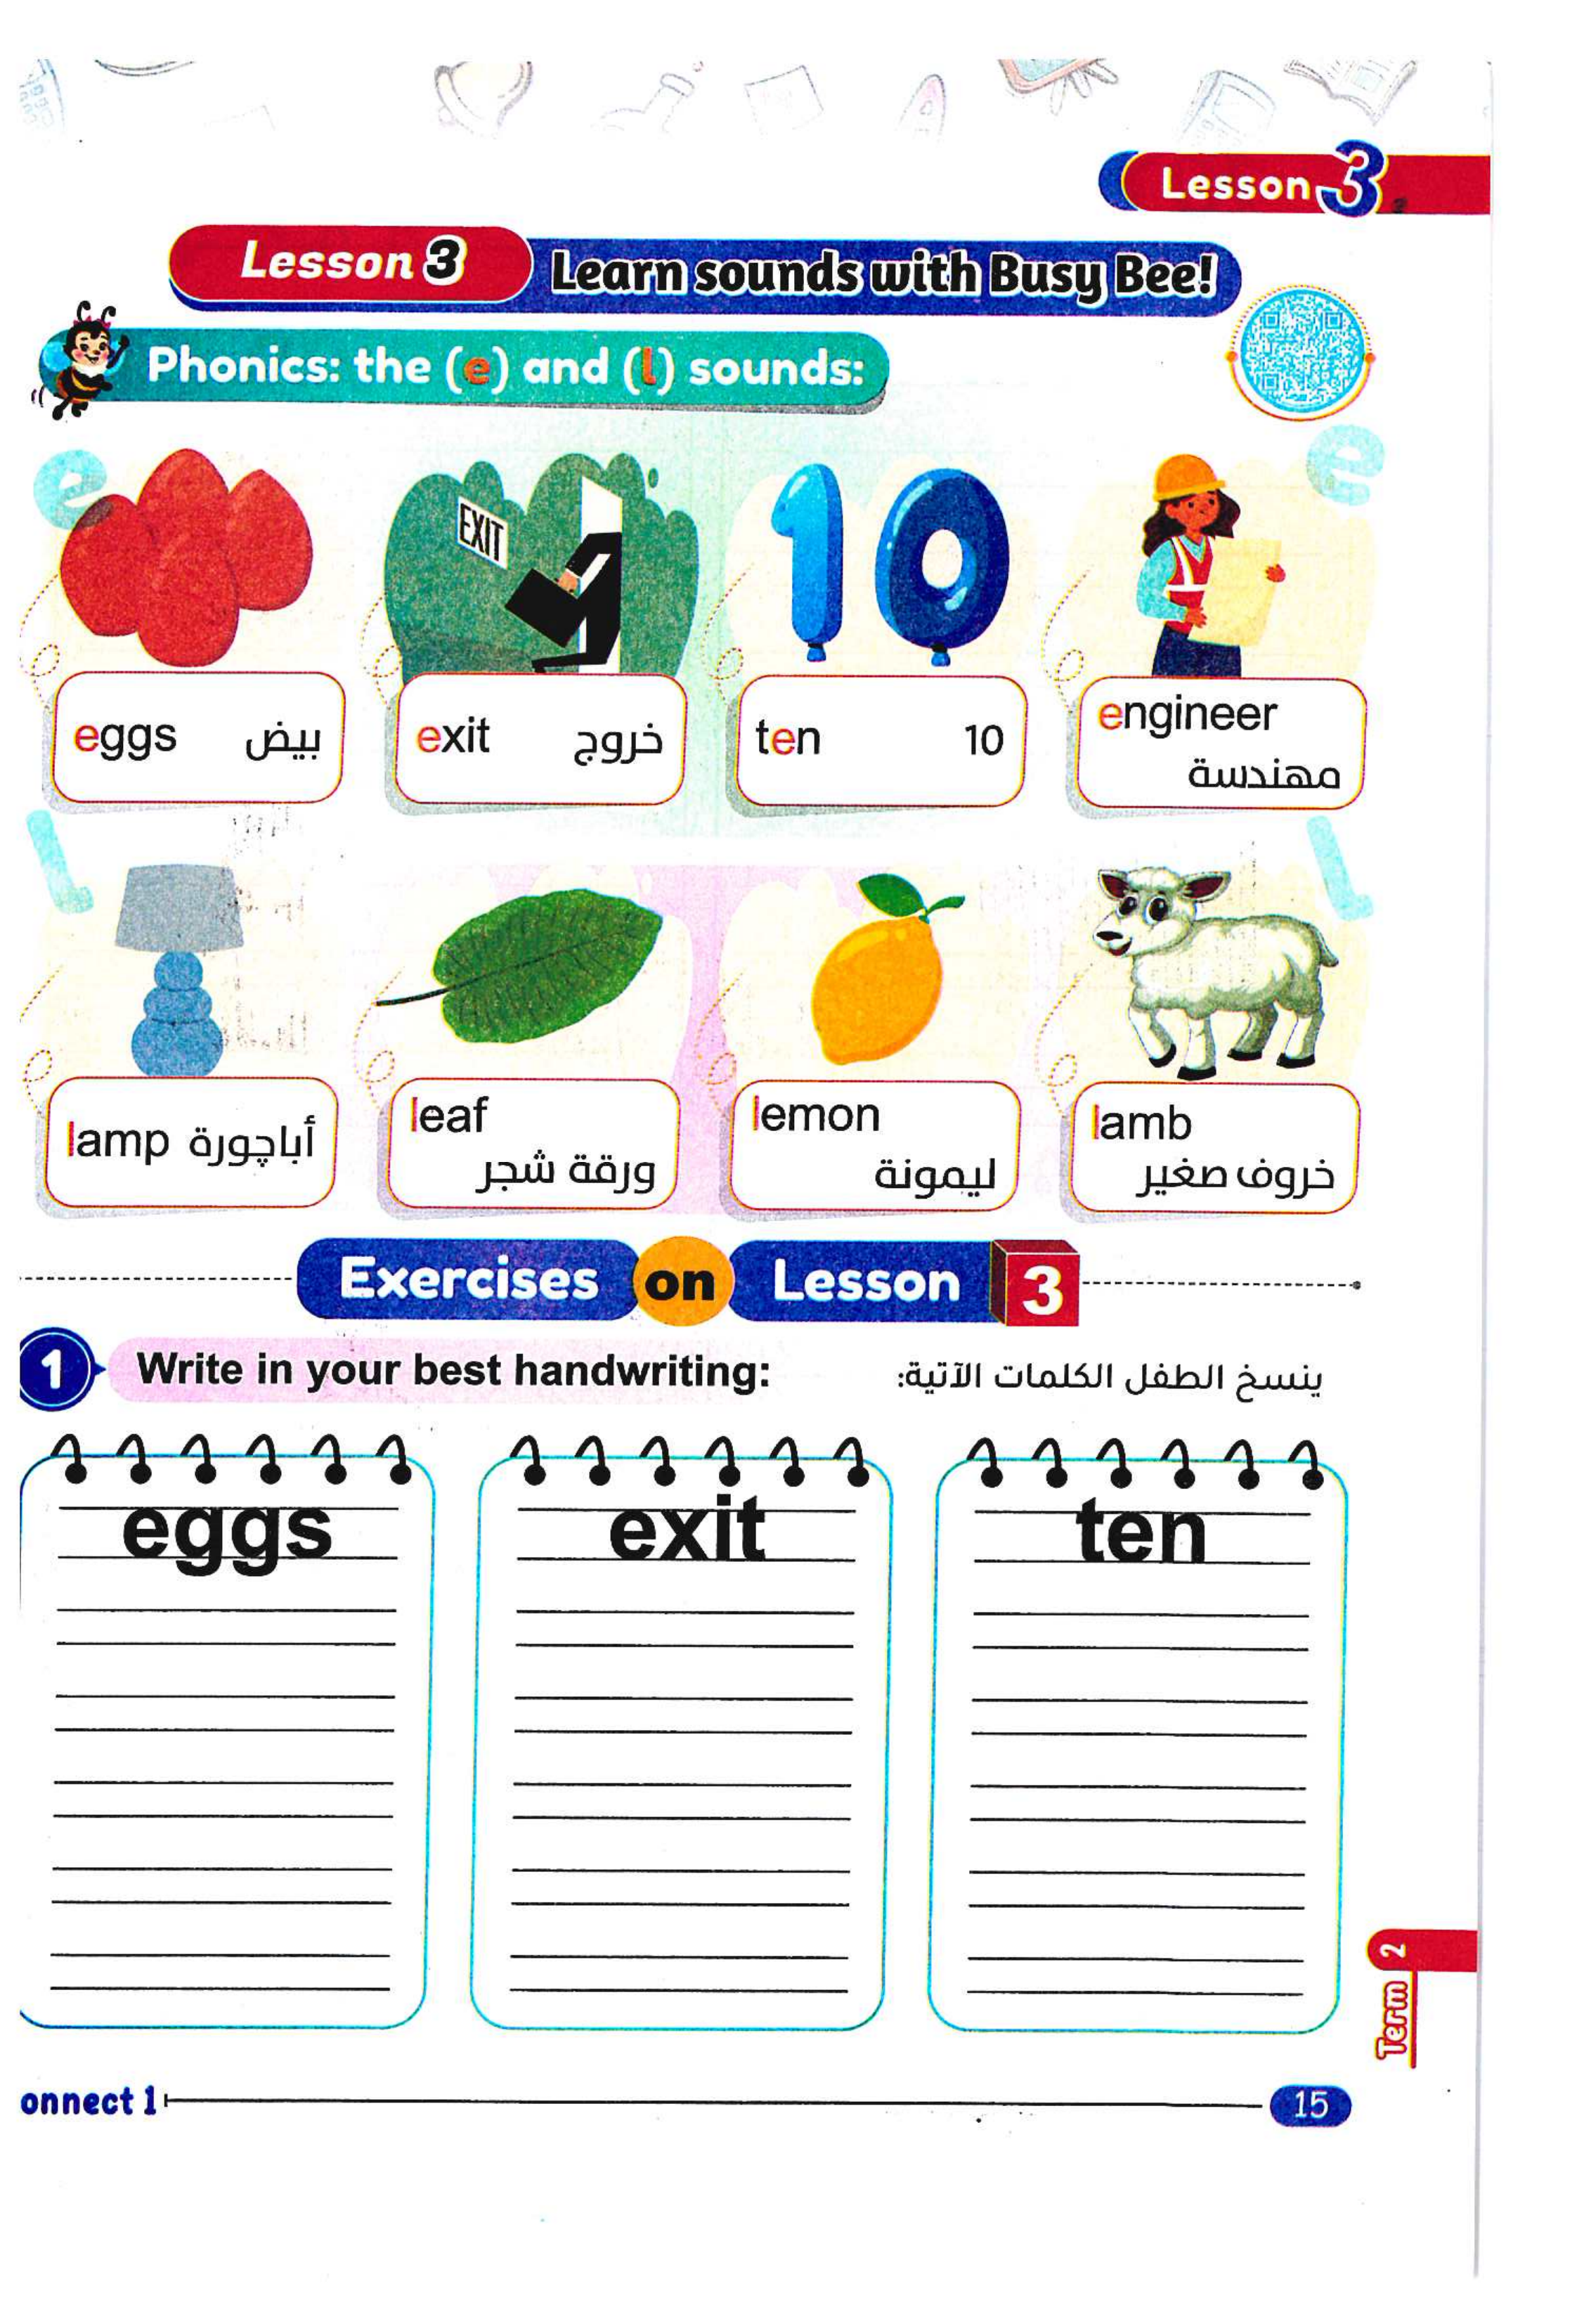 Lesson 3
Lesson 3 Learn sounds with Busy Bee!
Phonics: the (e) and (l) sounds:
e
e
EXIT
10
eggs بيض
exit خروج
ten 10
engineer
مهندسة
l
l
lamp أباچورة
leaf
ورقة شجر
lemon
ليمونة
lamb
خروف صغير
Exercises on Lesson 3
1 Write in your best handwriting: ينسخ الطفل الكلمات الآتية:
eggs
exit
ten
Term 2
onnect 1
15